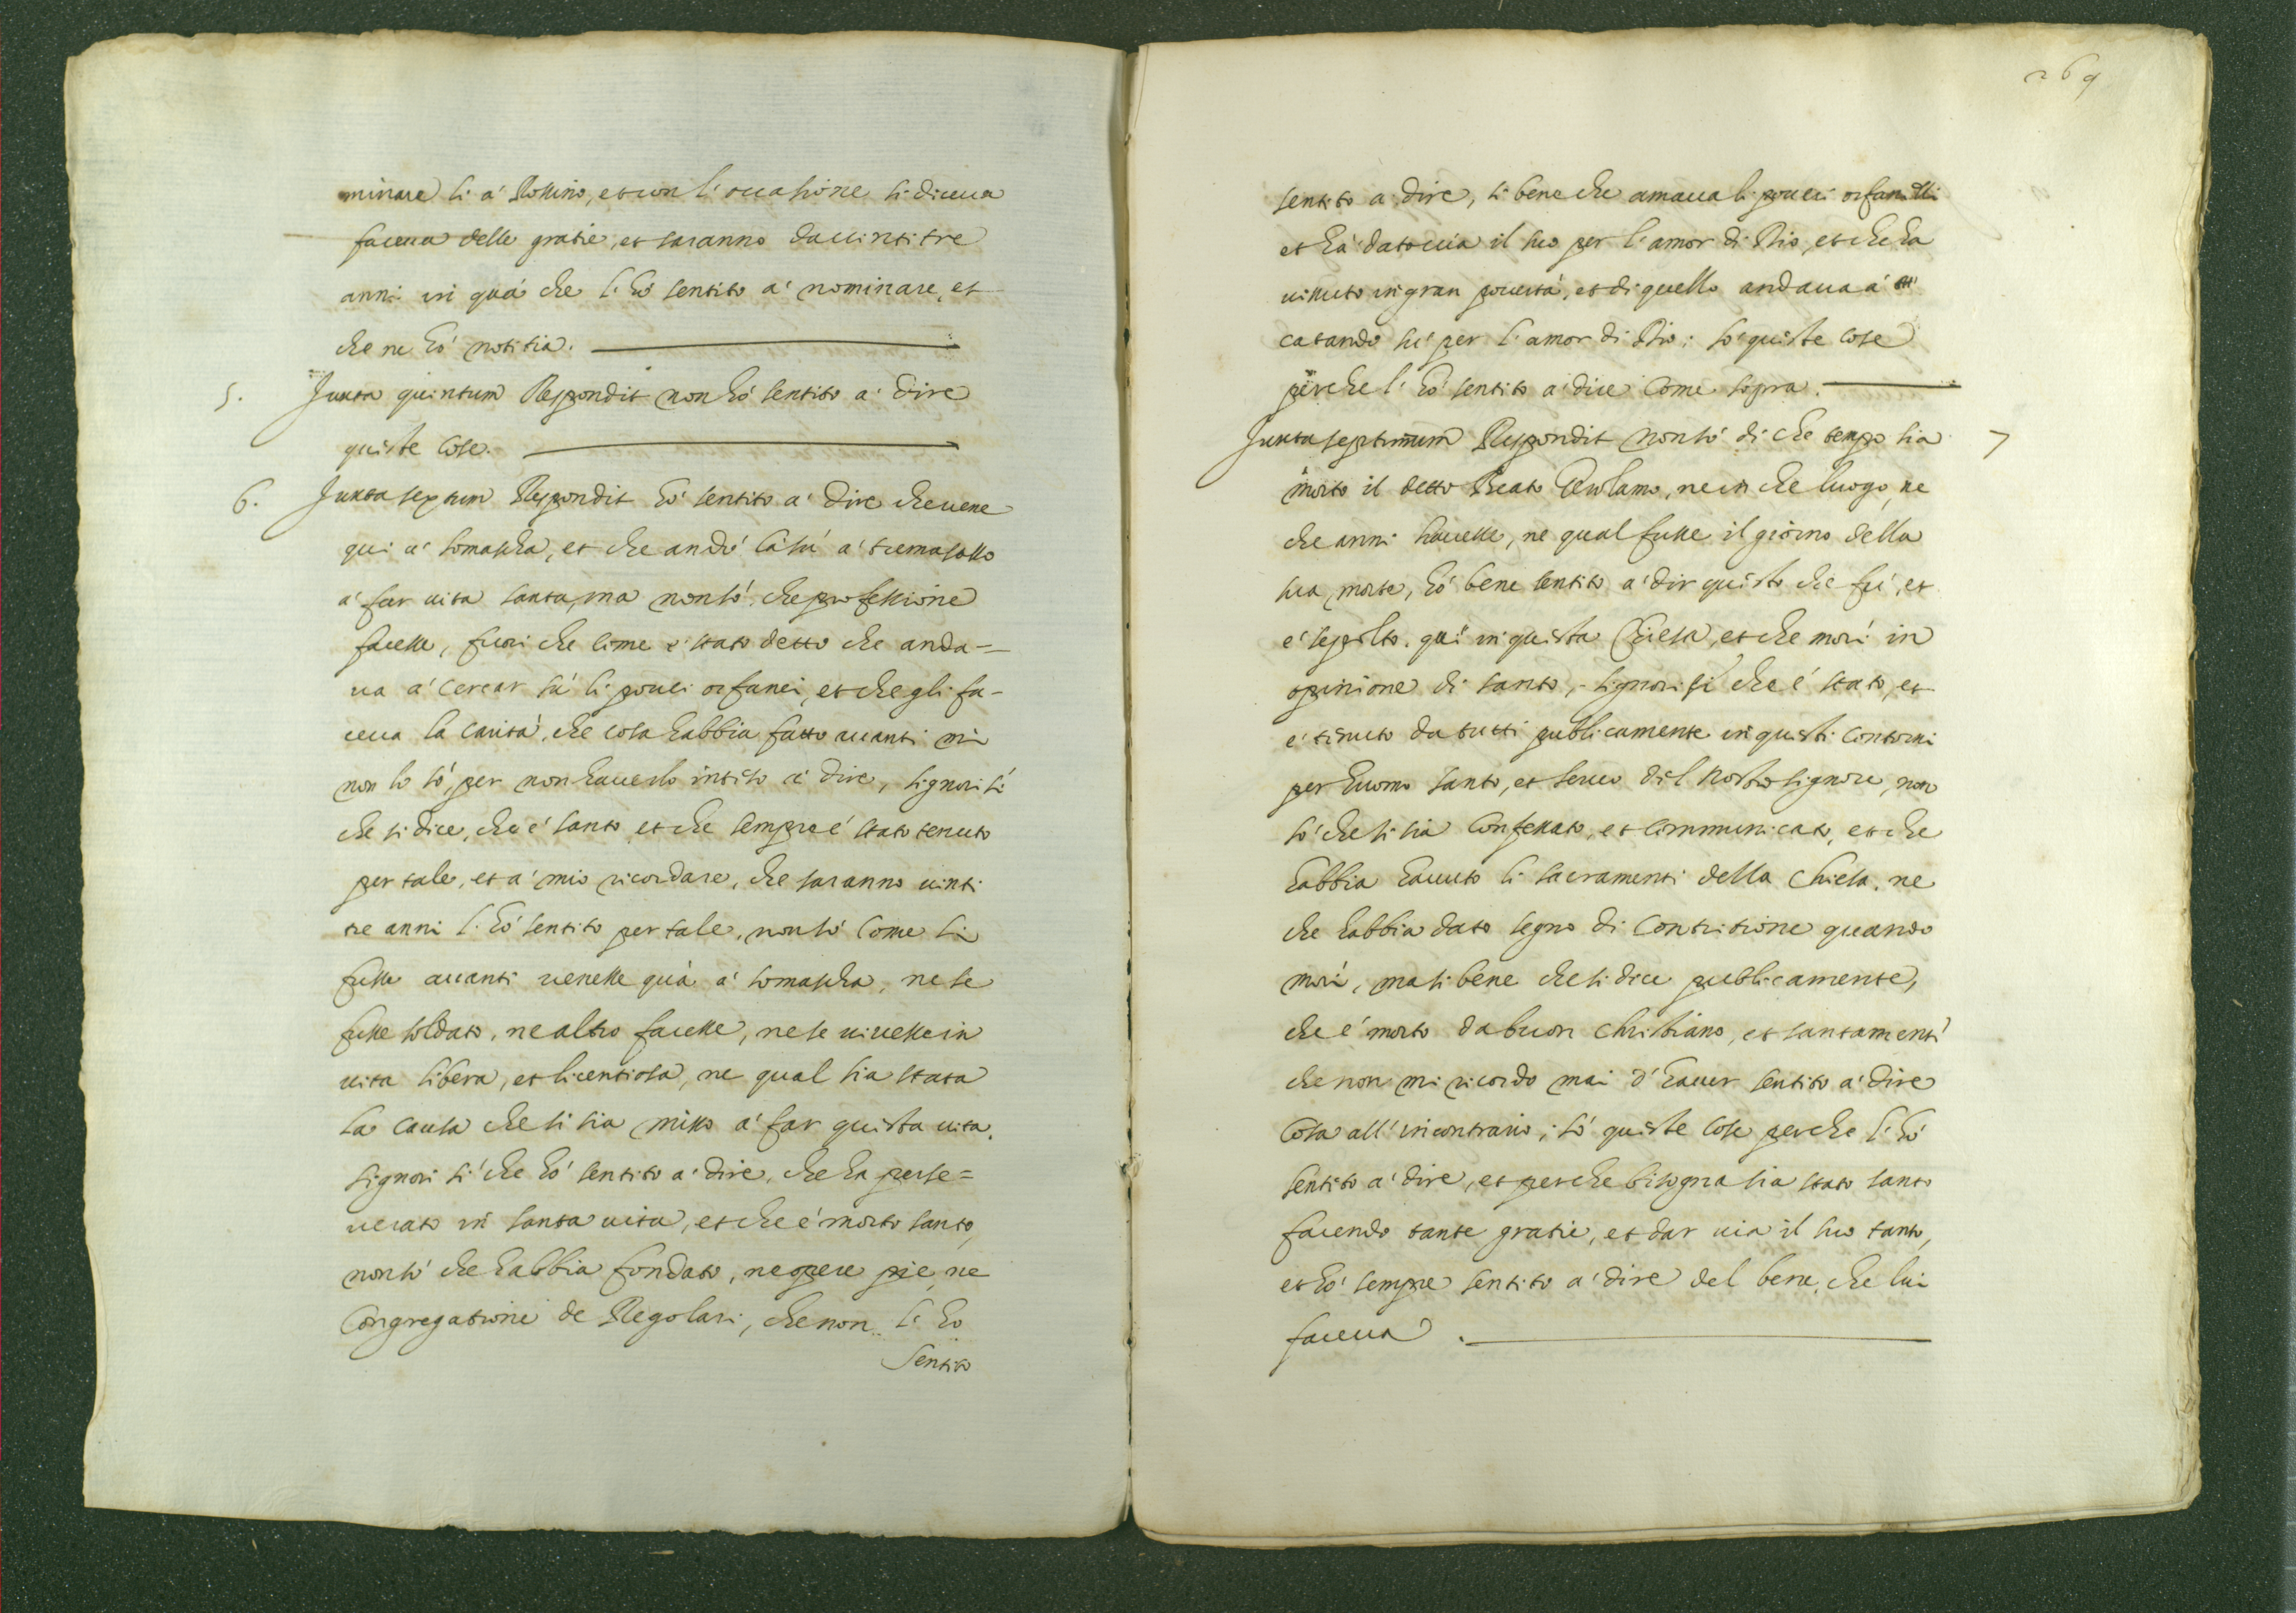 minare li à Rossino, et con l'occasione si diceua
faceua delle gratie, et saranno da uinti tre
anni in quà che l'hò sentito à nominare, et
che ne hò notitia.
5. Juxta quintum Respondit non hò sentito à dire
queste cose.
6. Juxta sextum Respondit hò sentito à dire che uene
qui à Somascha, et che andò là sù à tremasasso
à far uita santa, ma non sò che professione
facesse, fuori che come è stato detto che anda=
ua à cercar sù li poueri orfanei, et che gli fa-
ceua la carità, che cosa habbia fatto auanti mi
non lo sò, per non hauerlo intiso à dire, signori sì
che si dice, che è santo, et che sempre è stato tenuto
per tale, et à mio ricordare, che saranno uinti
tre anni l'hò sentito per tale, non sò come si
fusse auanti uenesse quà à Somascha, ne se
fusse soldato, ne altro facesse, ne se uiuesse in
uita libera, et licentiosa, ne qual sia stata
la causa che si sia misso à far questa uita.
signori sì che hò sentito à dire, che ha perse=
uerato in santa uita, et che è morto santo,
non sò che habbia fondato, ne opere pie, ne
Congregatione de Regolari, che non l'ho
sentito
269
sentito à dire, si bene che amaua li poueri orfanelli
et hà dato uia il suo per l'amor di Dio, et che ha
uissuto in gran pouertà, et di quello andaua à
catando sù per l'amor di Dio; sò queste cose
perche l'hò sentito à dire come sopra.
Juxta septimum Respondit non sò di che tempo sia 7
morto il detto Beato Gerolamo, ne in che luogo, ne
che anni hauesse, ne qual fusse il giorno della
sua morte, hò bene sentito à dir questo che fù, et
è sepolto quì in questa Chiesa, et che morì in
opinione di santo, signori sì che è stato, et
è tenuto da tutti publicamente in questi contorni
per huomo santo, et seruo del nostro signore, non
sò che si sia confessato, et communicato, et che
habbia hauuto li sacramenti della Chiesa, ne
che habbia dato segno di contritione quando
morì, ma si bene che si dice publicamente,
che è morto da buon christiano, et santamente
che non mi ricordo mai d'hauer sentito à dire
cosa all'incontrario; sò queste cose perche l'hò
sentito à dire, et perche bisogna sia stato santo
facendo tante gratie, et dar uia il suo tanto,
et hò sempre sentito à dire del bene, che lui
faceua.